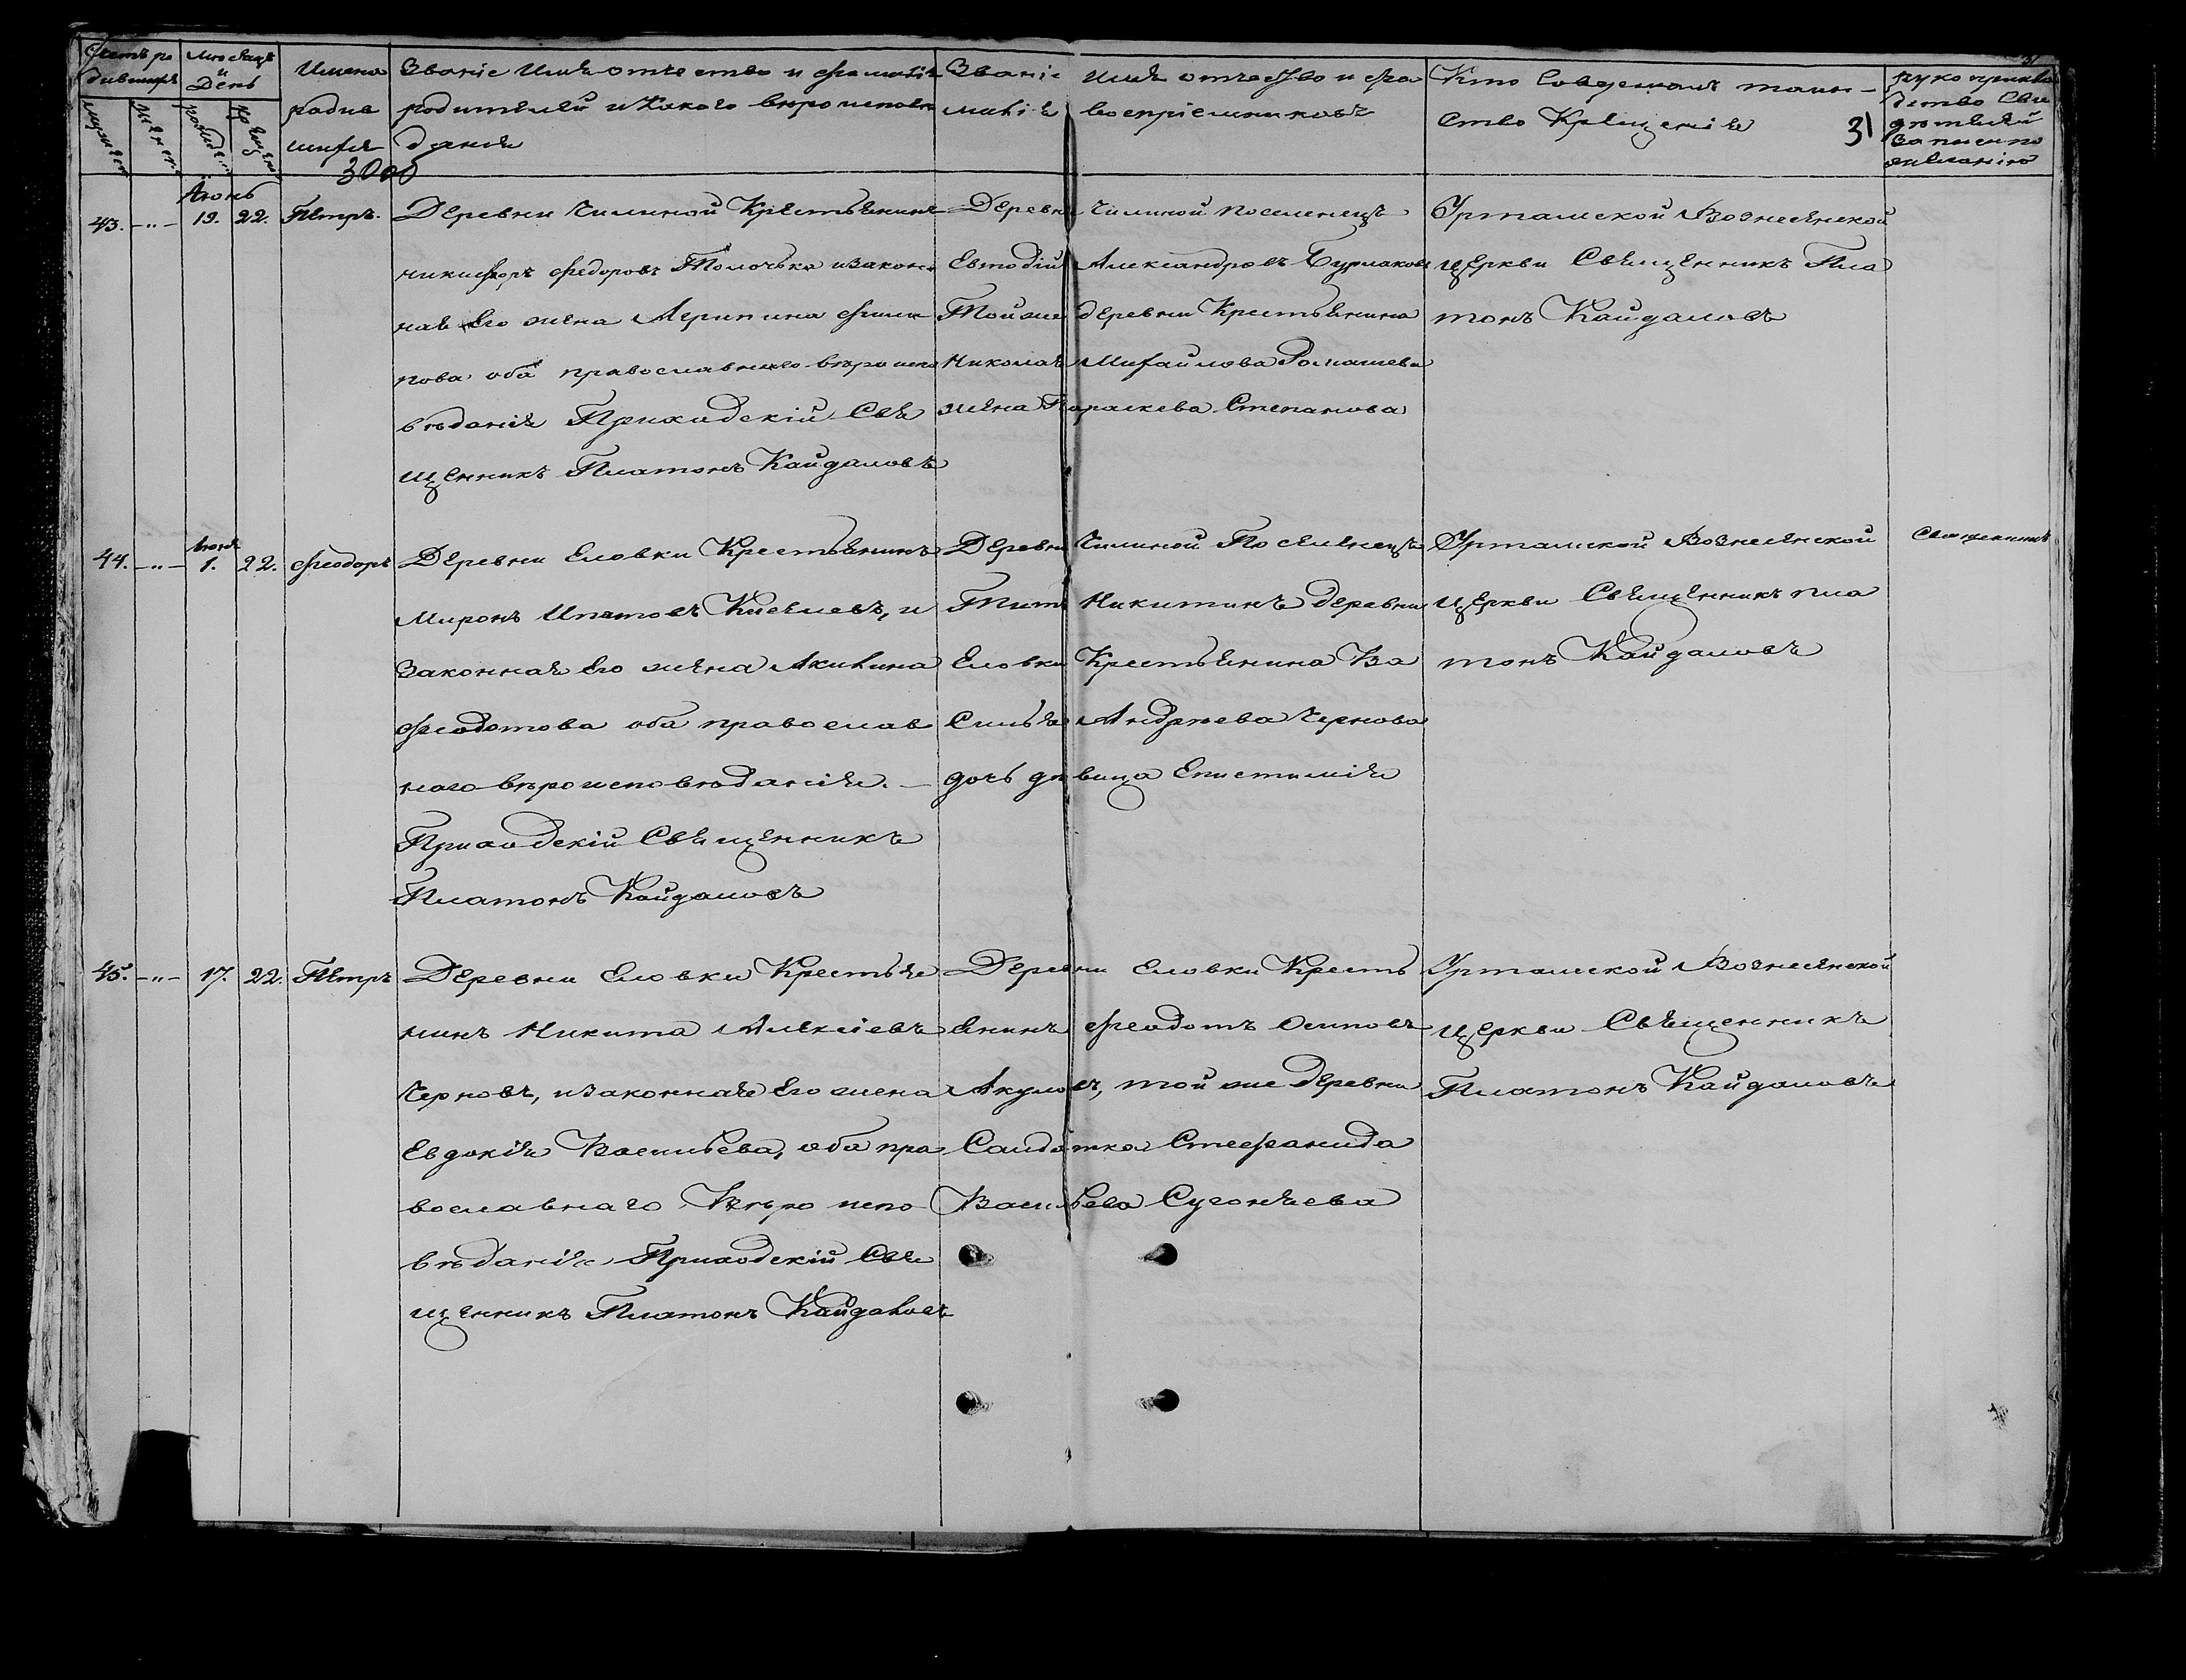 Счетъ ро
дившихся
Мѣсяцъ
и
День
Имена
родив
шихся
Званіе Имя отчество и фамилія
родителей и какого вѣроисповѣ
данія
Званіе Имя отчество и фа
милія воспріемниковъ
Кто Совершалъ таин-
ство Крещенія
31
рукоприклад
ство Сви
дѣтелей
Записи по
желанію
3000
Іюнь
43. -"- 19. 22. Петръ.
Деревни Чилиной Крестьянинъ
Никифоръ Федоровъ Толочько и закон
ная его жена Агрипина Фили
пова оба православнаго вѣроиспо
вѣданія Приходскій Свя
щенникъ Платонъ Кайдаловъ
Деревни Чилиной поселенецъ
Евтодій Александровъ Бурлаковъ
Той же деревни Крестьянина
Николая Михайлова Ромашева
жена Параскева Степанова
Уртамской Вознесенской
церкви Священникъ Пла
тонъ Кайдаловъ
44. -"- 1. 22. Феодоръ
Деревни Еловки Крестьянинъ
Миронъ Ипатовъ Киселевъ, и
Законная его жена Акилина
Феодотова оба православ
ного вѣроисповѣданія. -
Приходскій Священникъ
Платонъ Кайдаловъ
Деревни Чилиной Поселенецъ
Титъ Никитинъ деревни
Еловки Крестьянина Ва
силья Андрѣева Чернова
дочь дѣвица Епистимія
Уртамской Вознесенской
церкви Священникъ Пла
тонъ Кайдаловъ
Священникъ
45. -"- 17. 22. Петръ
Деревни Еловки Крестья
нинъ Никита Алексіевъ
Черновъ, и законная его жена
Евдокія Васильева, оба пра
вославнаго Вѣро испо
вѣданія Приходскій Свя
щенникъ Платонъ Кайдаловъ
Деревни Еловки Кресть
янинъ Феодотъ Осиповъ
Акуловъ, той же деревни
Солдатка Стефанида
Васильева Сугоняева
Уртамской Вознесенской
церкви Священникъ
Платонъ Кайдаловъ